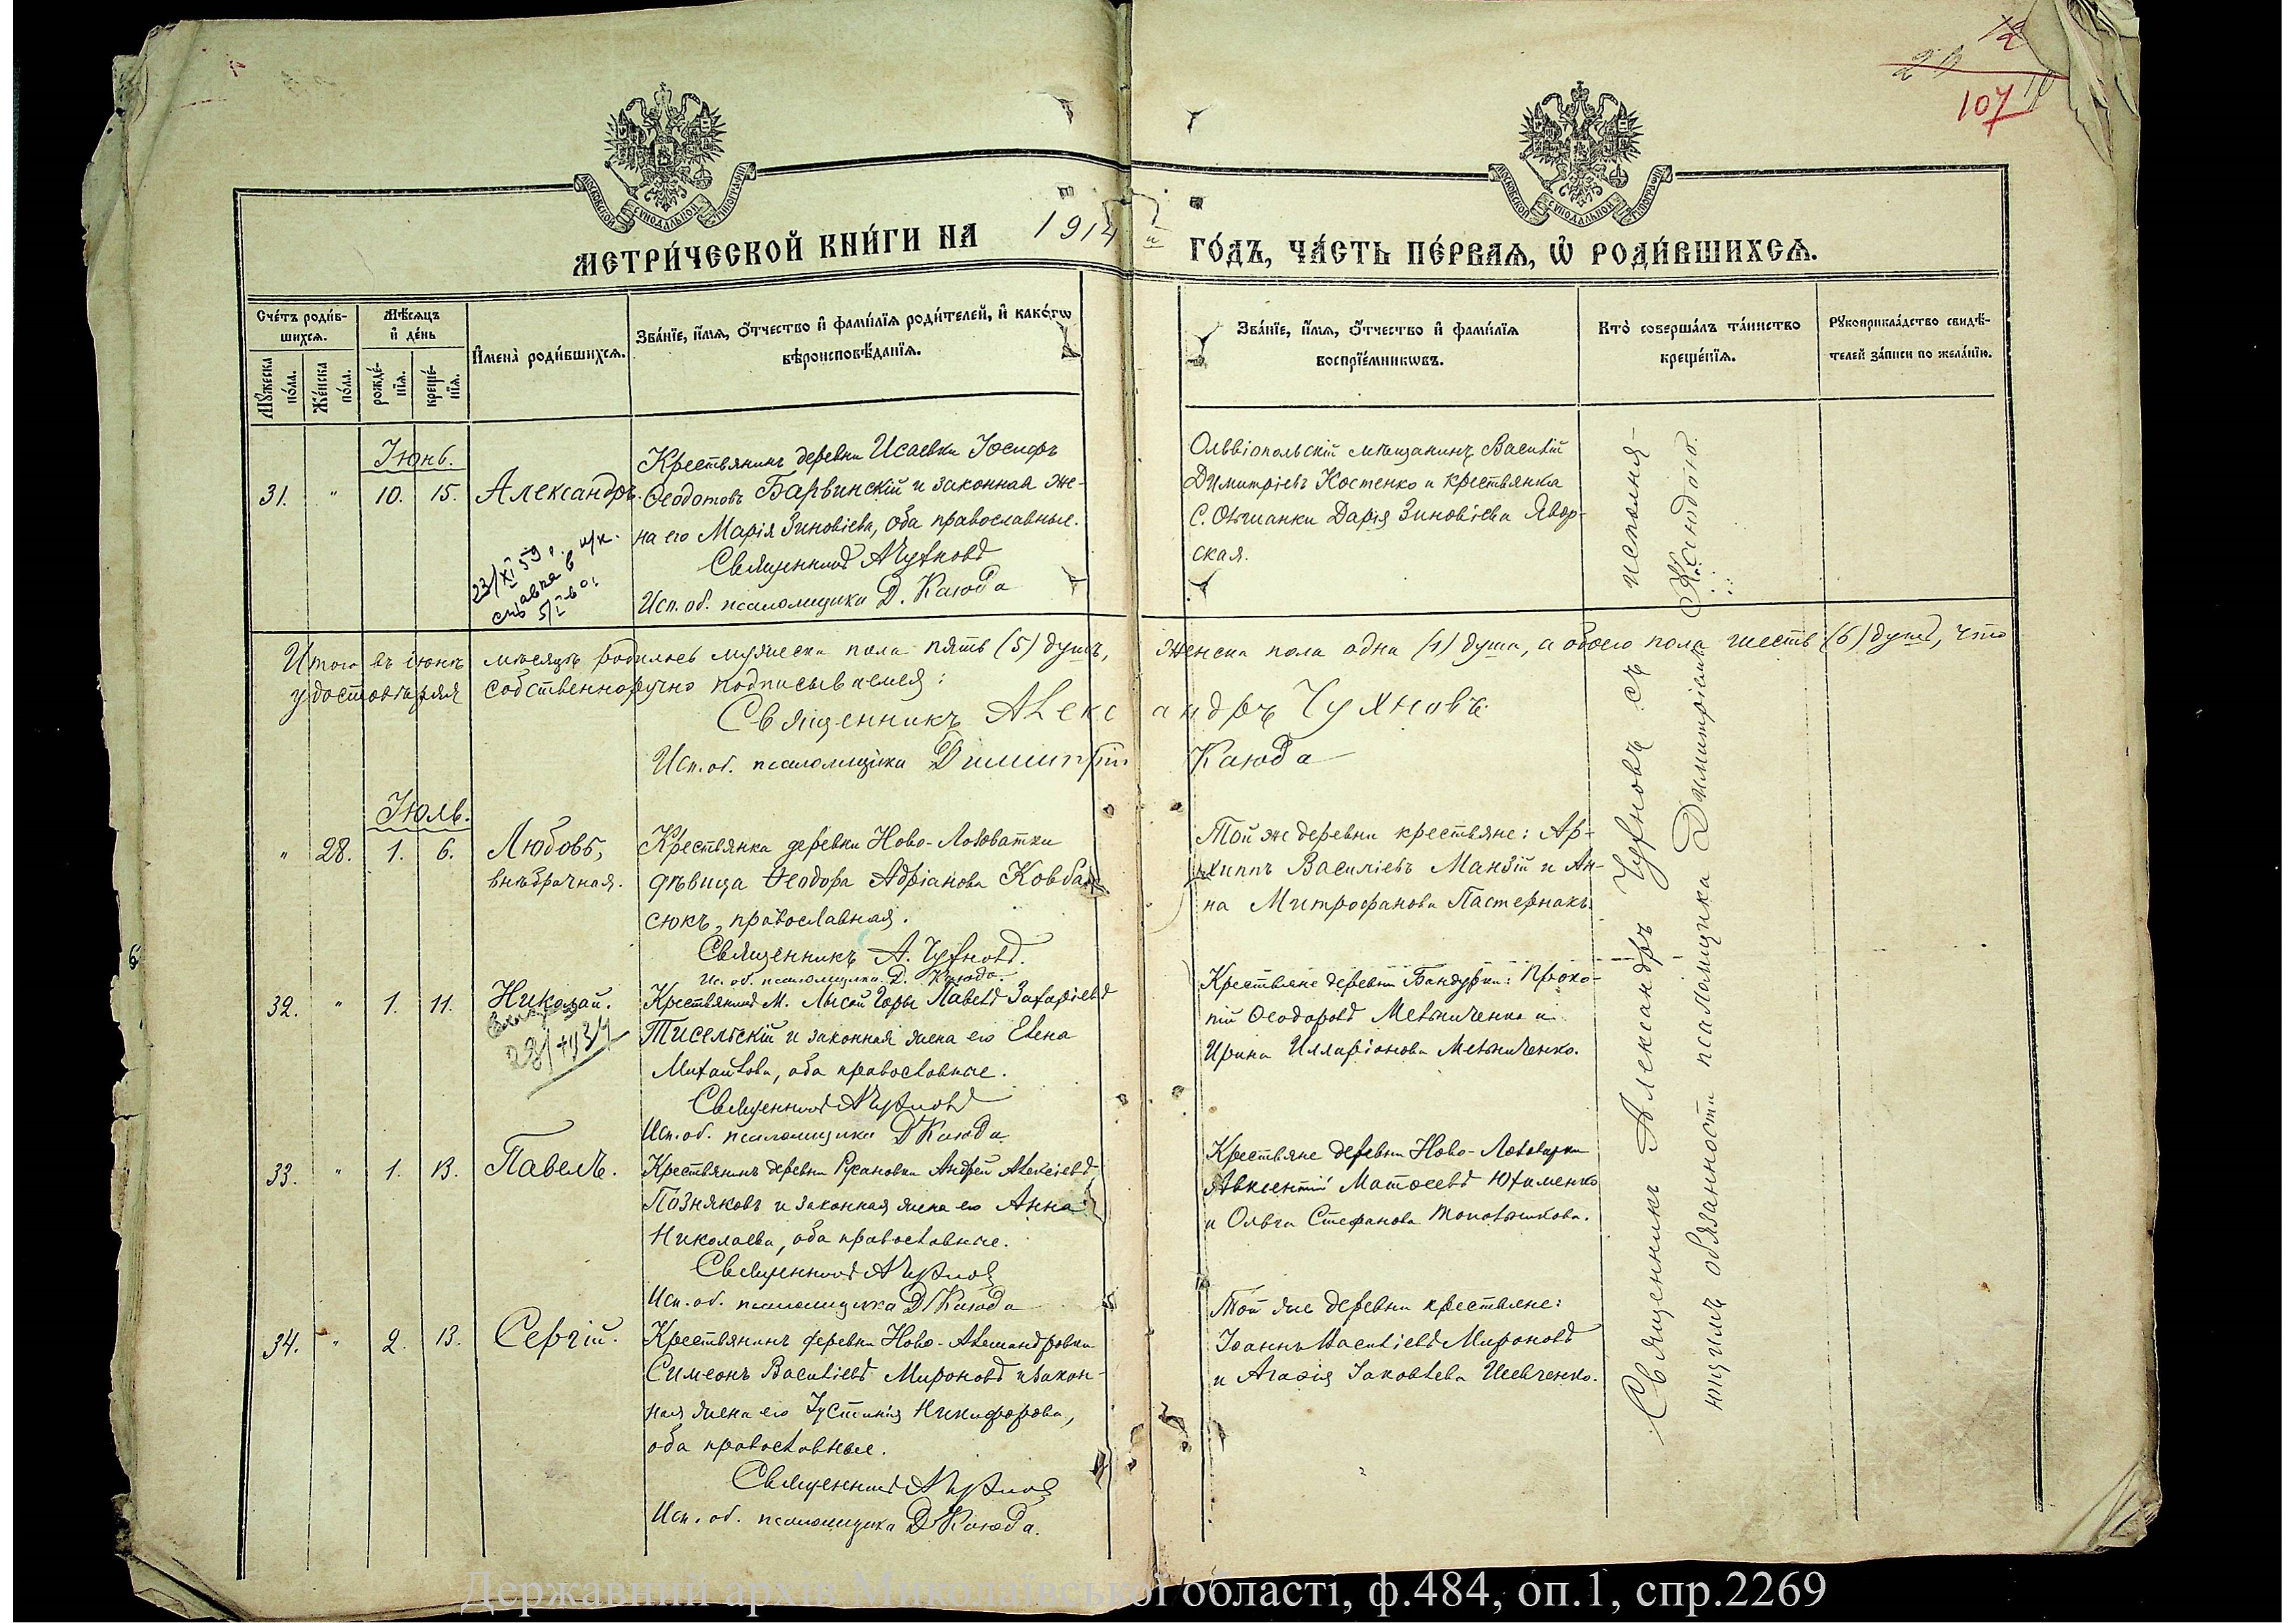 107
МОСКОВСКОЙ СУНОДАЛЬНОЙ ТИПОГРАФІИ
МОСКОВСКОЙ СУНОДАЛЬНОЙ ТИПОГРАФІИ
МЕТРИ́ЧЕСКОЙ КНИ́ГИ НА 1914 й ГО́ДЪ, ЧА́СТЬ ПЕ́РВАѦ, Ѽ РОДИ́ВШИХСѦ.
Сче́тъ роди́в-
шихсѧ.
Мꙋ́жеска по́ла.
Же́нска по́ла.
Мѣ́сѧцъ
и҆ де́нь
рожде́-
нїѧ.
креще́-
нїѧ.
И҆мена̀ роди́вшихсѧ.
Зва́нїе, и҆́мѧ, ѻ҆́тчество и҆ фами́лїѧ роди́телей, и҆ како́гѡ
вѣроисповѣ́данїѧ.
Зва́нїе, и҆́мѧ, ѻ҆́тчество и҆ фами́лїѧ
воспрїе́мникѡвъ.
Кто̀ соверша́лъ та́инство
креще́нїѧ.
Рꙋкоприкла́дство свидѣ́-
телей за́писи по жела́нїю.
Іюнь.
31. " 10. 15. Александръ.
23/XI 59 г. н/к.
справка в
5/I-60г
Крестьянинъ деревни Исаевки Іосифъ
Ѳеодотовъ Барвинскій и законная же-
на его Марія Зиновіева, оба православные.
Священникъ А Чухновъ
Исп. об. псаломщика Д. Каюда
Ольвіопольскій мѣщанинъ Василій
Димитріевъ Костенко и крестьянка
с. Ольшанки Дарія Зиновіева Явор-
ская.
Итого въ іюнѣ мѣсяцѣ родилось мужеска пола пять (5) душъ, женска пола одна (1) душа, а обоего пола шесть (6) душъ, что
удостовѣряя собственноручно подписываемся:
Священникъ Александръ Чухновъ
Исп. об. псаломщика Димитрій Каюда
Іюль.
" 28. 1. 6. Любовь,
внѣбрачная.
Крестьянка деревни Ново-Лозоватки
дѣвица Ѳеодора Адріанова Ковба-
сюкъ, православная.
Священникъ А. Чухновъ.
Ис. об. псаломщика Д. Каюда.
Той же деревни крестьяне: Ар-
хиппъ Василіевъ Манзій и Ан-
на Митрофанова Пастернакъ.
32. " 1. 11. Николай.
Крестьянинъ м. Лысой Горы Павелъ Захаріевъ
Тисельскій и законная жена его Елена
Михаилова, оба православные.
Священникъ А Чухновъ
Исп. об. псаломщика Д Каюда
Крестьяне деревни Бандурки: Проко-
пій Ѳеодоровъ Мельниченко и
Ирина Илларіонова Мельниченко.
33. " 1. 13. Павелъ.
Крестьянинъ деревни Русановки Андрей Алексіевъ
Позняковъ и законная жена его Анна
Николаева, оба православные.
Священникъ А Чухновъ
Исп. об. псаломщика Д Каюда
Крестьяне деревни Ново-Лозоватки
Авксентій Матѳеевъ Юхименко
и Ольга Стефанова
34. " 2. 13. Сергій.
Крестьянинъ деревни Ново-Александровки
Симеонъ Василіевъ Мироновъ и закон-
ная жена его Іустинія Никифорова,
оба православные.
Священникъ А Чухновъ
Исп. об. псаломщика Д Каюда.
Той же деревни крестьяне:
Іоаннъ Василіевъ Мироновъ
и Агафія Іаковлева Шевченко.
Священникъ Александръ Чухновъ съ исполня-
ющимъ обязанности псаломщика Димитріемъ Каюдою.
Державний архів Миколаївської області, ф.484, оп.1, спр.2269